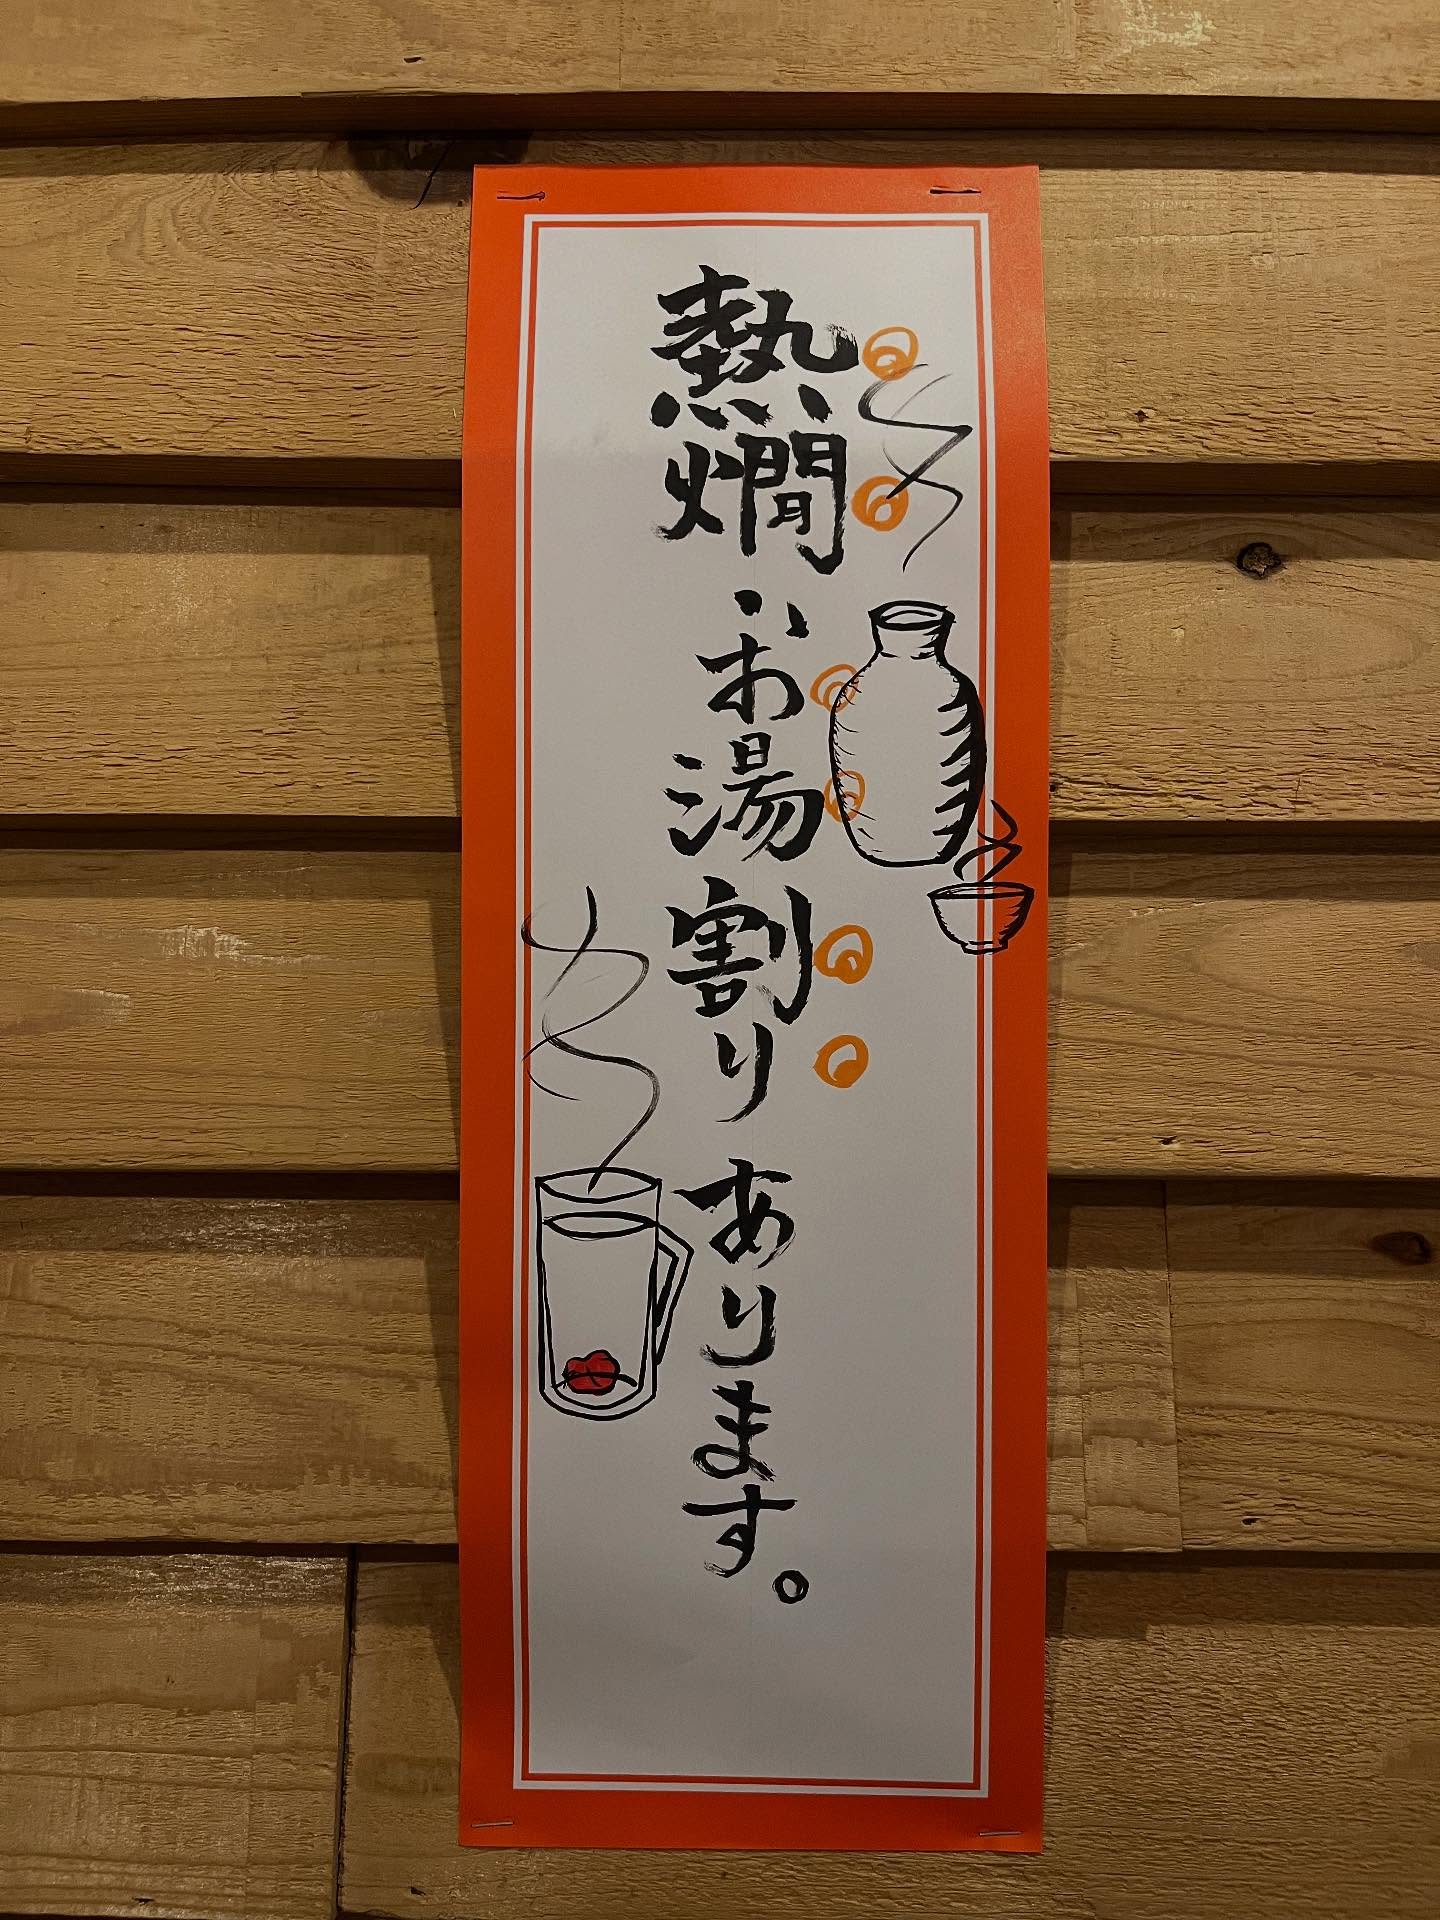 熱燗、お湯割りあります。